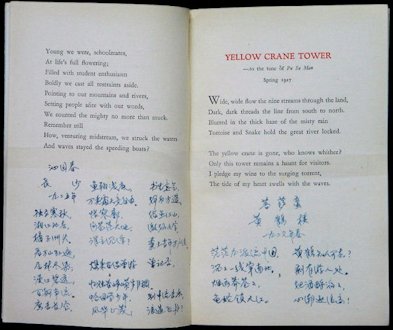 Young we were, schoolmates,
At life's full flowering;
Filled with student enthusiasm
Boldly we cast all restraints aside.
Pointing to our mountains and rivers,
Setting people afire with our words,
We counted the mighty no more than muck.
Remember still
How, venturing midstream, we struck the waters
And waves stayed the speeding boats?
沁园春
长 沙
一九二五年
独立寒秋
湘江北去
橘子洲头
看万山红遍
层林尽染
漫江碧透
百舸争流
鹰击长空
鱼翔浅底
万类霜天竞自由
怅寥廓
问苍茫大地
携来百侣曾游
恰同学少年
风华正茂
书生意气
挥斥方遒
指点江山
激扬文字
曾记否
到中流击水
浪遏飞舟
YELLOW CRANE TOWER
—to the tune of Pu Sa Man
Spring 1927
Wide, wide flow the nine streams through the land,
Dark, dark threads the line from south to north.
Blurred in the thick haze of the misty rain
Tortoise and Snake hold the great river locked.
The yellow crane is gone, who knows whither?
Only this tower remains a haunt for visitors.
I pledge my wine to the surging torrent,
The tide of my heart swells with the waves.
菩萨蛮
黄鹤楼
一九二七年春
茫茫九派流中国
沉沉一线穿南北
烟雨莽苍苍
龟蛇锁大江
黄鹤知何去?
剩有游人处
把酒酹滔滔
心潮逐浪高!